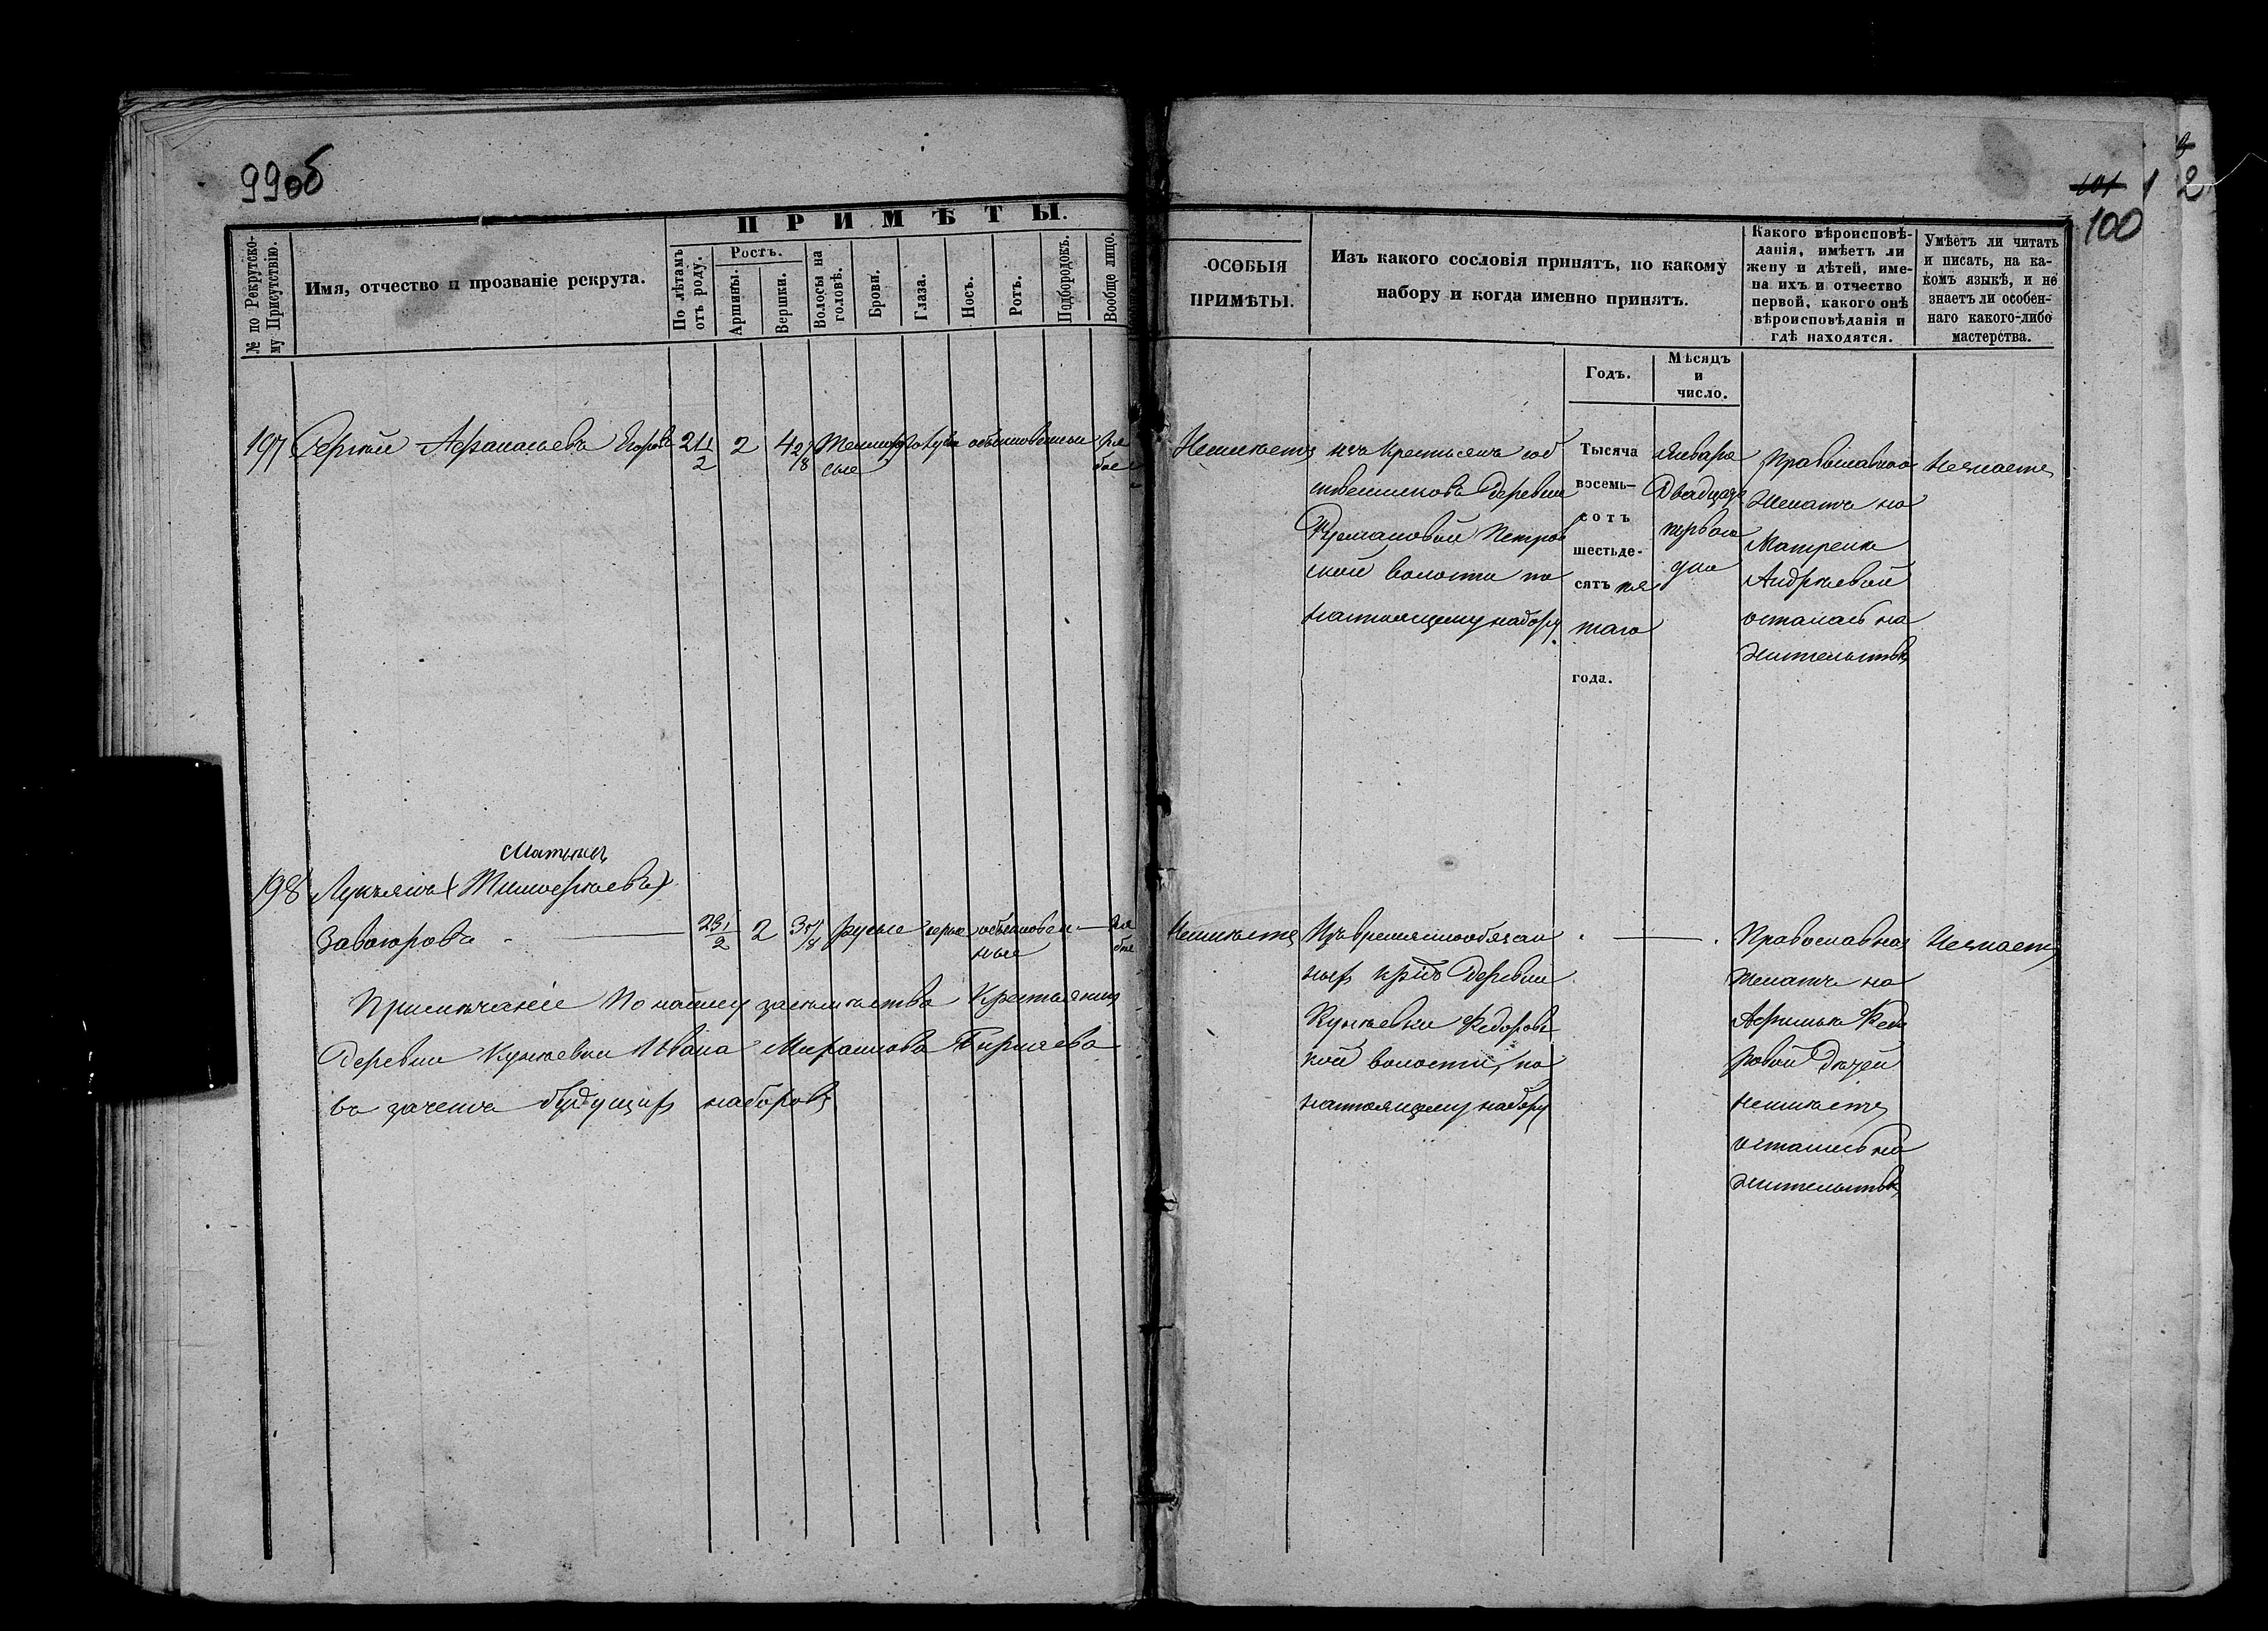 99об
101
100
1
2
ПРИМѢТЫ.
№ по Рекрутско-
му Присутствію.
Имя, отчество и прозваніе рекрута.
По лѣтамъ
отъ роду.
Ростъ.
Аршины.
Вершки.
Волосы на
головѣ.
Брови.
Глаза.
Носъ.
Ротъ.
Подбородокъ.
Вообще лицо.
ОСОБЫЯ
ПРИМѢТЫ.
Изъ какого сословія принятъ, по какому
набору и когда именно принятъ.
Какого вѣроисповѣ-
данія, имѣетъ ли
жену и дѣтей, име-
на ихъ и отчество
первой, какого онѣ
вѣроисповѣданія и
гдѣ находятся.
Умѣетъ ли читать
и писать, на ка-
комъ языкѣ, и не
знаетъ ли особен-
наго какого-либо
мастерства.
Годъ.
Мѣсяцъ
и
число.
197 Сергѣй Афанасьевъ Егоровъ 21 1/2 2 4 2/8 обыкновенные ря
бое
Неимѣетъ
изъ крестьянъ соб
ственниковъ деревни
Петров
ской волости по
настоящему набору
Тысяча
восемь-
сотъ
шестьде-
сятъ пя
таго
года.
Января
Двадцать
перваго
дня
Православнаго
Женатъ на
Матренѣ
Андреевой
осталась на
жительствѣ
Незнаетъ
Матвѣевъ
198 Лукьянъ (Тимофѣевъ)
23 1/2 2 3 5/8 русые сѣрые обыкновен-
ные
ря
бое
Неимѣетъ
Изъ временнообязан
ныхъ крѣтъ деревни
Федоровс
кой волости, по
настоящему набору
Православнаго
женатъ на
Афимьѣ Федо
ровой дѣтей
неимѣетъ
осталась на
жительствѣ
Незнаетъ
Примѣчаніе По найму за семейство Крестьянина
Деревни Ивана
въ зачетъ будущихъ наборовъ